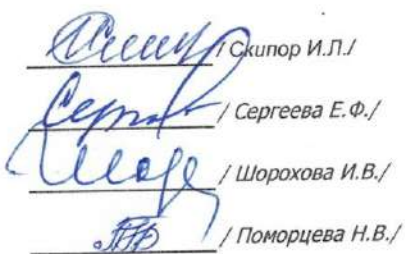 / Скипор И.Л./
/ Сергеева Е.Ф./
/ Шорохова И.В./
/ Поморцева Н.В./